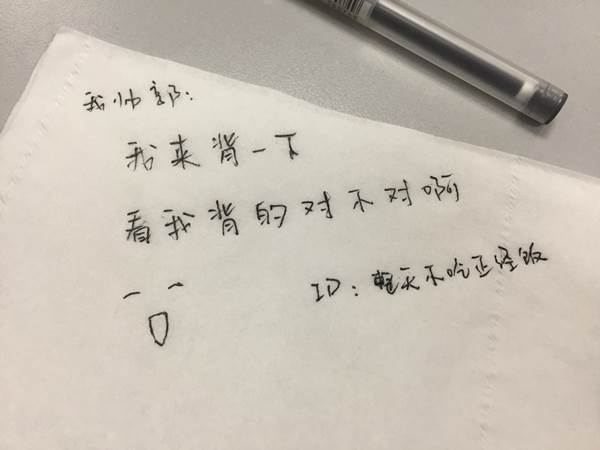 我帅郭:
我来背一下
看我背的对不对啊
ID:整天不吃正经饭